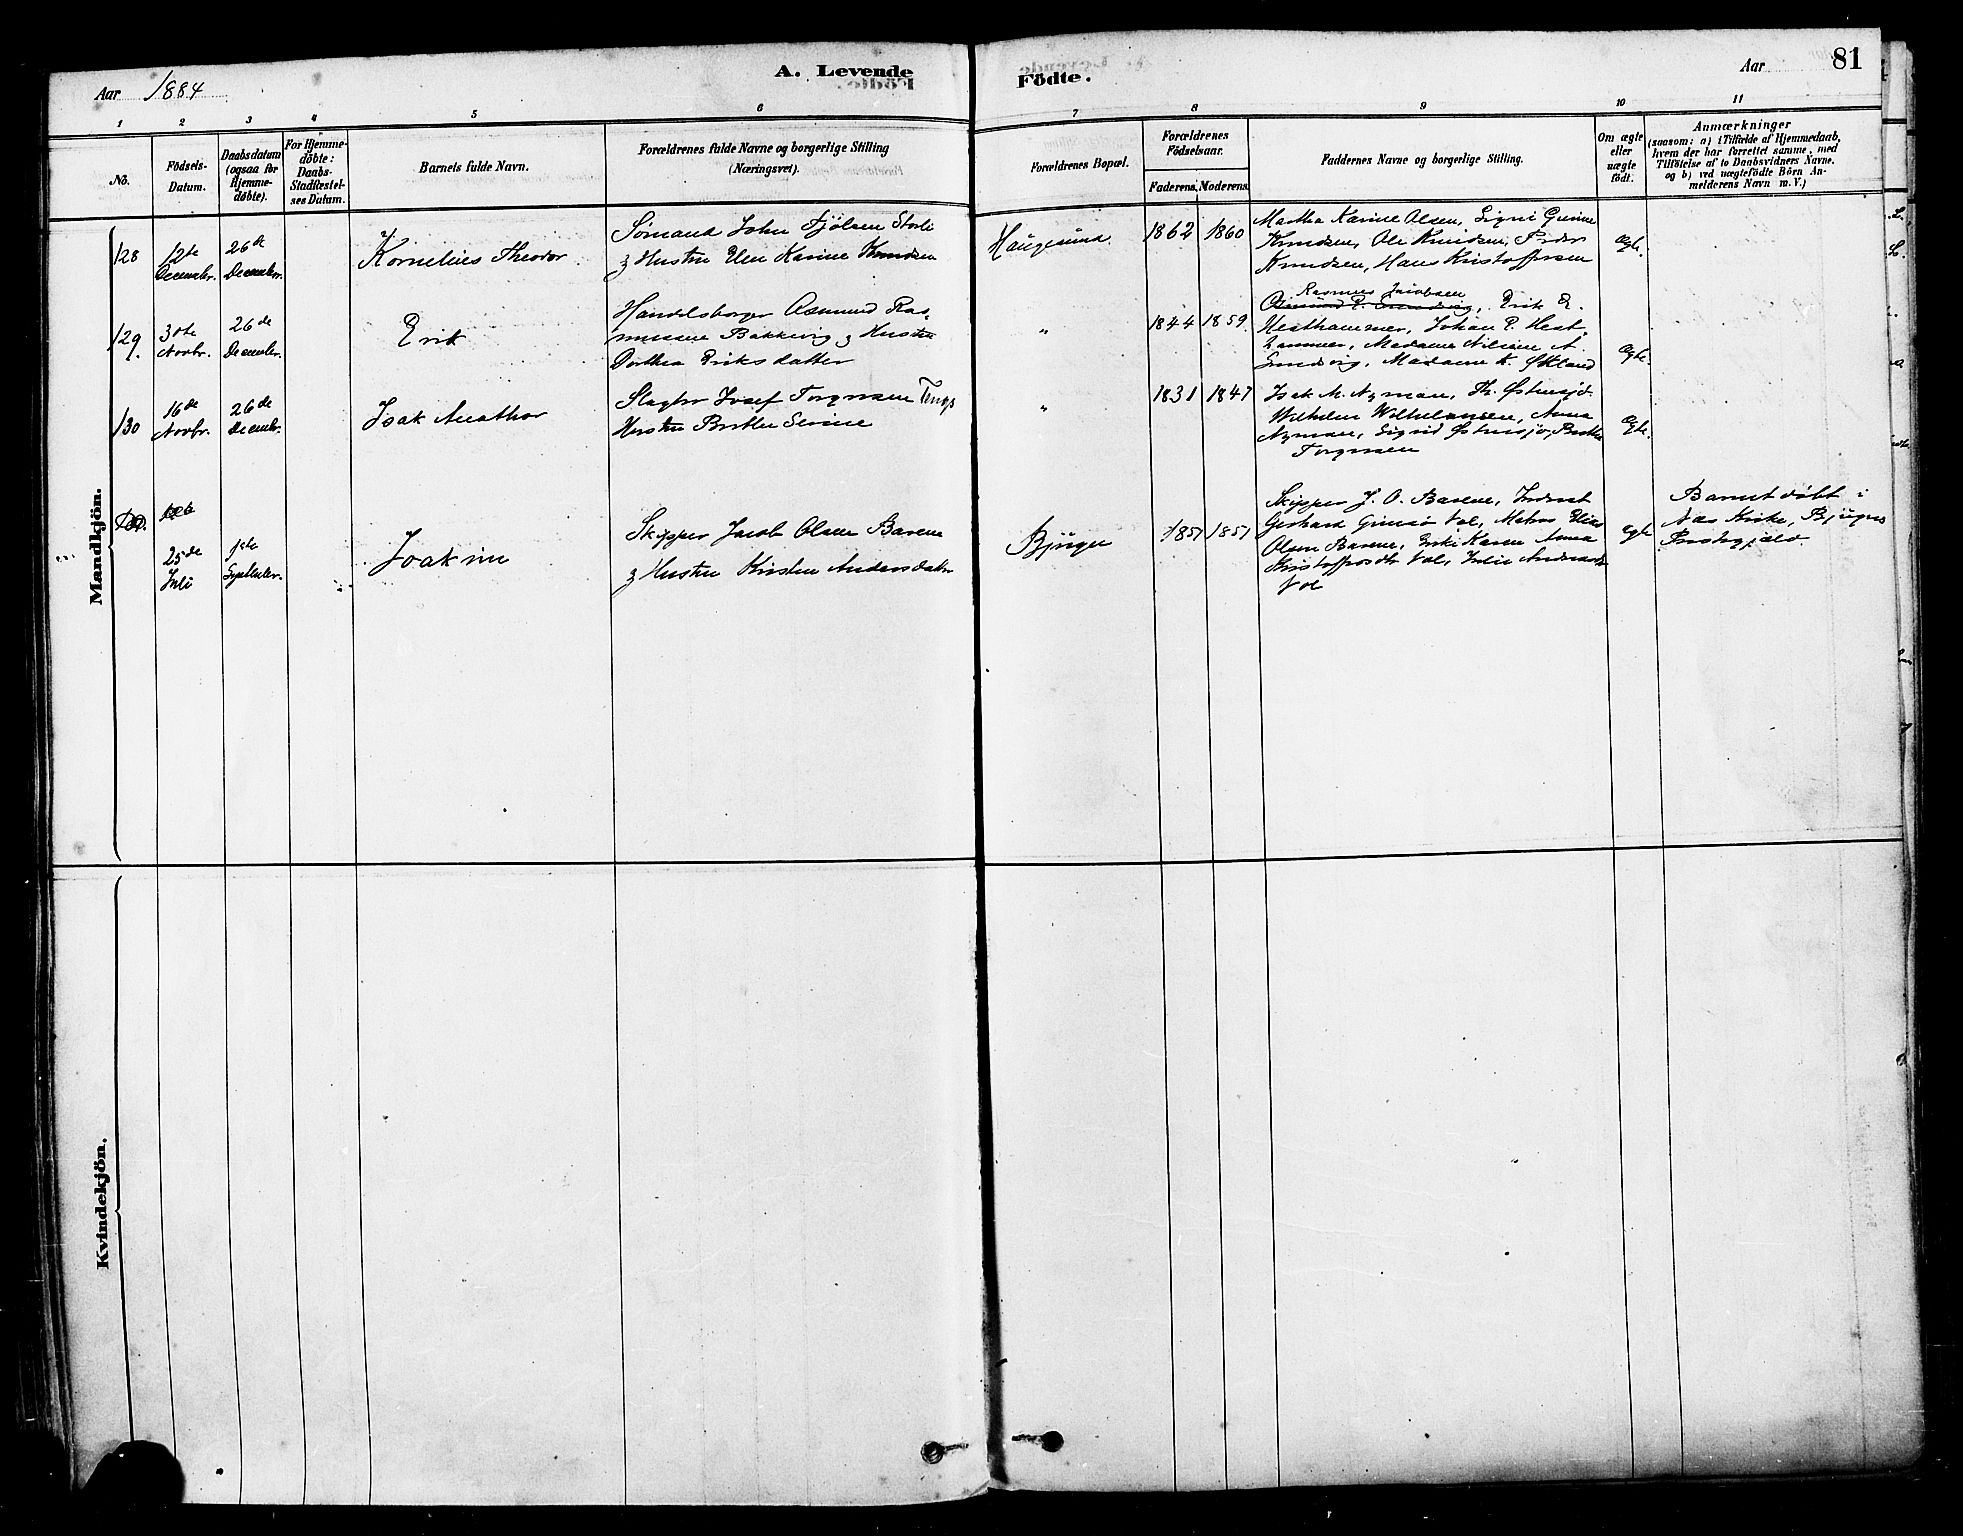 Aar 1884
A. Levende
Födte.
Aar
81
1 2 3 4 5 6 7 8 9 10 11
No.
Födsels-
Datum.
Daabsdatum
(ogsaa for
Hjemme-
døbte).
For Hjemme-
døbte:
Daabs-
Stadfæstel-
ses Datum.
Barnets fulde Navn.
Forældrenes fulde Navne og borgerlige Stilling
(Næringsvei).
Forældrenes Bopæl.
Forældrenes
Födselsaar.
Faderens. Moderens.
Faddernes Navne og borgerlige Stilling.
Om ægte
eller
uægte
født.
Anmærkninger
(saasom: a) i Tilfælde af Hjemmedaab,
hvem der har forrettet samme, med
Tilføielse af to Daabsvidners Navne.
og b) ved uægtefødte Børn An-
melderens Navn m. V.)
Mandkjön.
128
12te
Decembr.
26de
Decembr.
Kornelius Theodor
Sømand John Fjölsen Stole
& Hustru Elen Karine Knudsen
Haugesund.
1862 1860
Martha Karine Olsen, Signe Gurine
Knudsen, Ole Knudsen, Peder
Knudsen, Hans Kristoffersen
Ægte.
129.
30te
Novbr.
26de
Decembr.
Erik
Handelsborger Asmund Ras-
mussen Bakkevig & Hustru
Dorthea Eriksdatter
"
1844 1859.
Rasmus Jacobsen
Erik E.
Hesthammer, Johan E. Hest-
hammer, Madame A.
Sundvig, Madame K. Økland
Ægte.
130
16de
Novbr.
26de
Decembr.
Isak Anathor
Slagter Josef Torgersen Tengs
Hustru Berthe Serine
"
1831 1847
Isak M. Nyman, Th. Østensjö.
Wilhelm Wilhelmsen, Anna
Nyman, Sigrid Østensjö, Berthe
Torgersen
Ægte.
25de
Juli
1ste
September.
Joakim
Skipper Jacob Olsen Barene
& Hustru Kirsten Andersdatter
Bjugn
1851 1851
Skipper J. O. Barene,
Gerhard Val,
Olsen Barene, Karen Anna
Kristoffersdtr Val, Julie
Val
Ægte
Barnet døbt i
Næs Kirke, Bjugns
Prestegjæld.
Kvindekjön.